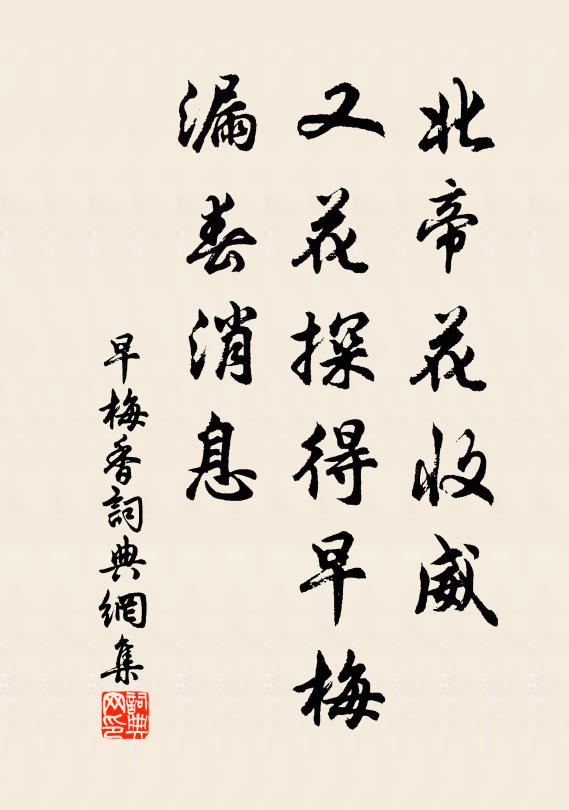 北帝花收威
又花探得早梅
漏春消息
早梅香詞典網集
詞典网印